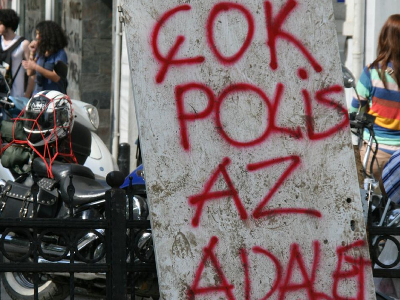 ÇOK
POLİS
AZ
ADALET